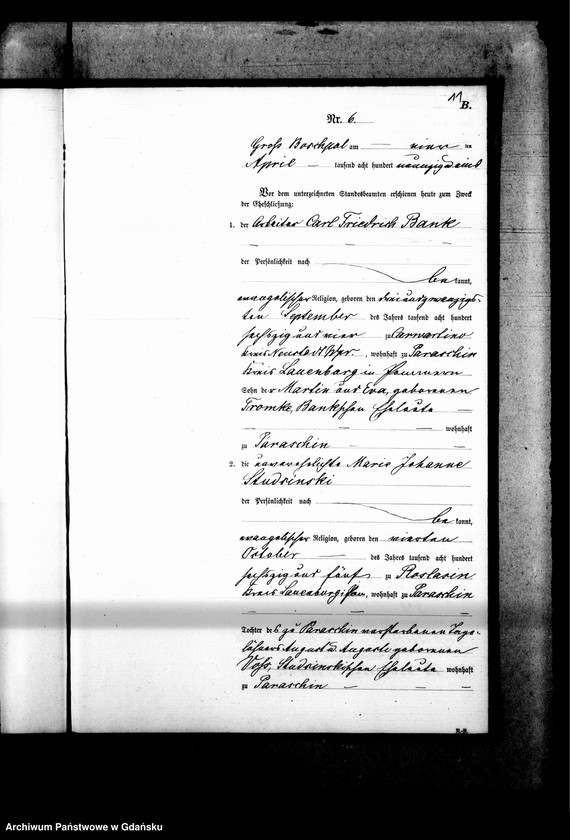 11
B.
Nr. 6.
Gross Boschpol am — vier ten
April — tausend acht hundert neunzig und eins
Vor dem unterzeichneten Standesbeamten erschienen heute zum Zweck
der Eheschließung:
1. der Arbeiter Carl Friedrich Bank
der Persönlichkeit nach
be kannt,
evangelischer Religion, geboren den dreiundzwanzigs-
ten September des Jahres tausend acht hundert
sechszig und vier zu
Kreis Neustadt Wpr., wohnhaft zu Paraschin
Kreis Lauenburg in Pommern
Sohn der Martin und Eva, geborenen
Tromke, Bankschen Eheleute —
wohnhaft
zu Paraschin
2. die unverehelichte Marie Johanne
Studsinski
der Persönlichkeit nach
be kannt,
evangelischer Religion, geboren den vierten
October — des Jahres tausend acht hundert
sechszig und fünf zu Roslasin
Kreis Lauenburg i/Pom, wohnhaft zu Paraschin
Tochter des zu Paraschin verstorbenen Tage-
löhners August u. Auguste geborenen
Voss, Studsinskischen Eheleute wohnhaft
zu Paraschin —
Archiwum Państwowe w Gdańsku